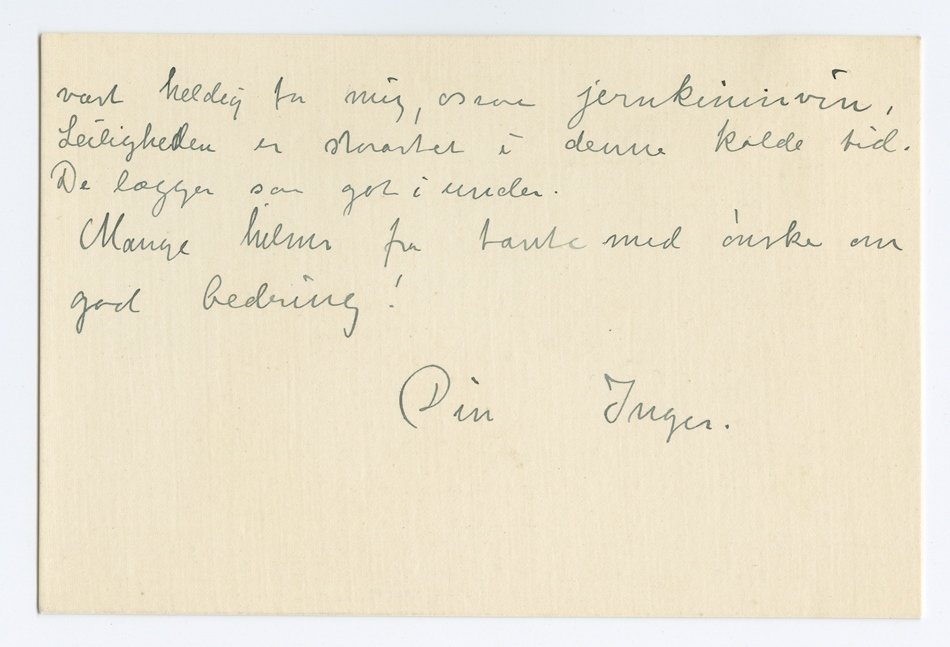 vært heldig for mig, ossaa jernkininvin,
Leiligheden er storartet i denne kolde tid.
De lægger saa got i under.
Mange hilsner fra tante med ønske om
god bedring!
Din Inger.